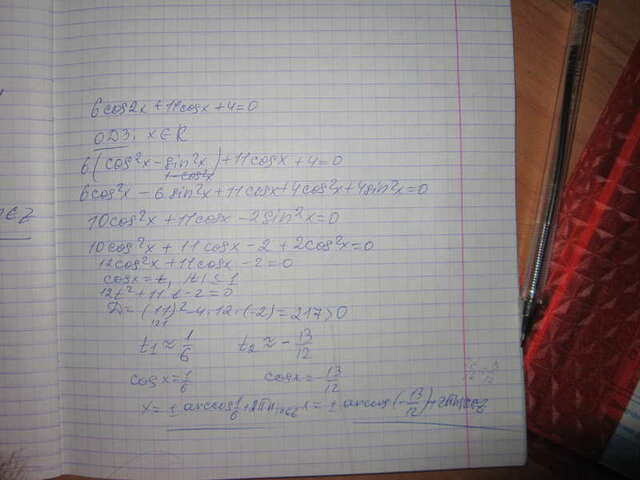 6cos2x + 11cosx + 4 = 0
ОДЗ: x ∈ R
6(cos²x - sin²x) + 11cosx + 4 = 0
1-cos²x
6cos²x - 6sin²x + 11cosx + 4cos²x + 4sin²x = 0
∈ Z
10cos²x + 11cosx - 2sin²x = 0
10cos²x + 11cosx - 2 + 2cos²x = 0
12cos²x + 11cosx - 2 = 0
cosx = t, |t| ≤ 1
12t² + 11t - 2 = 0
D = (11)² - 4·12·(-2) = 217 > 0
121
t₁ ≈ 1/6 t₂ ≈ -13/12
cosx = 1/6 cosx = -13/12
x = ± arccos 1/6 + 2πn, n∈Z x = ± arccos(-13/12) + 2πn, n∈Z